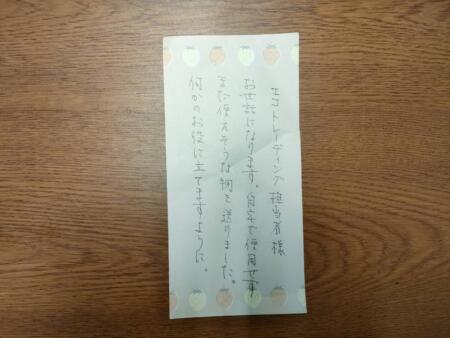 エコトレーディング担当者様
お世話になります。自宅で使用せず
まだ使えそうな物を送りました。
何かのお役に立てますように。